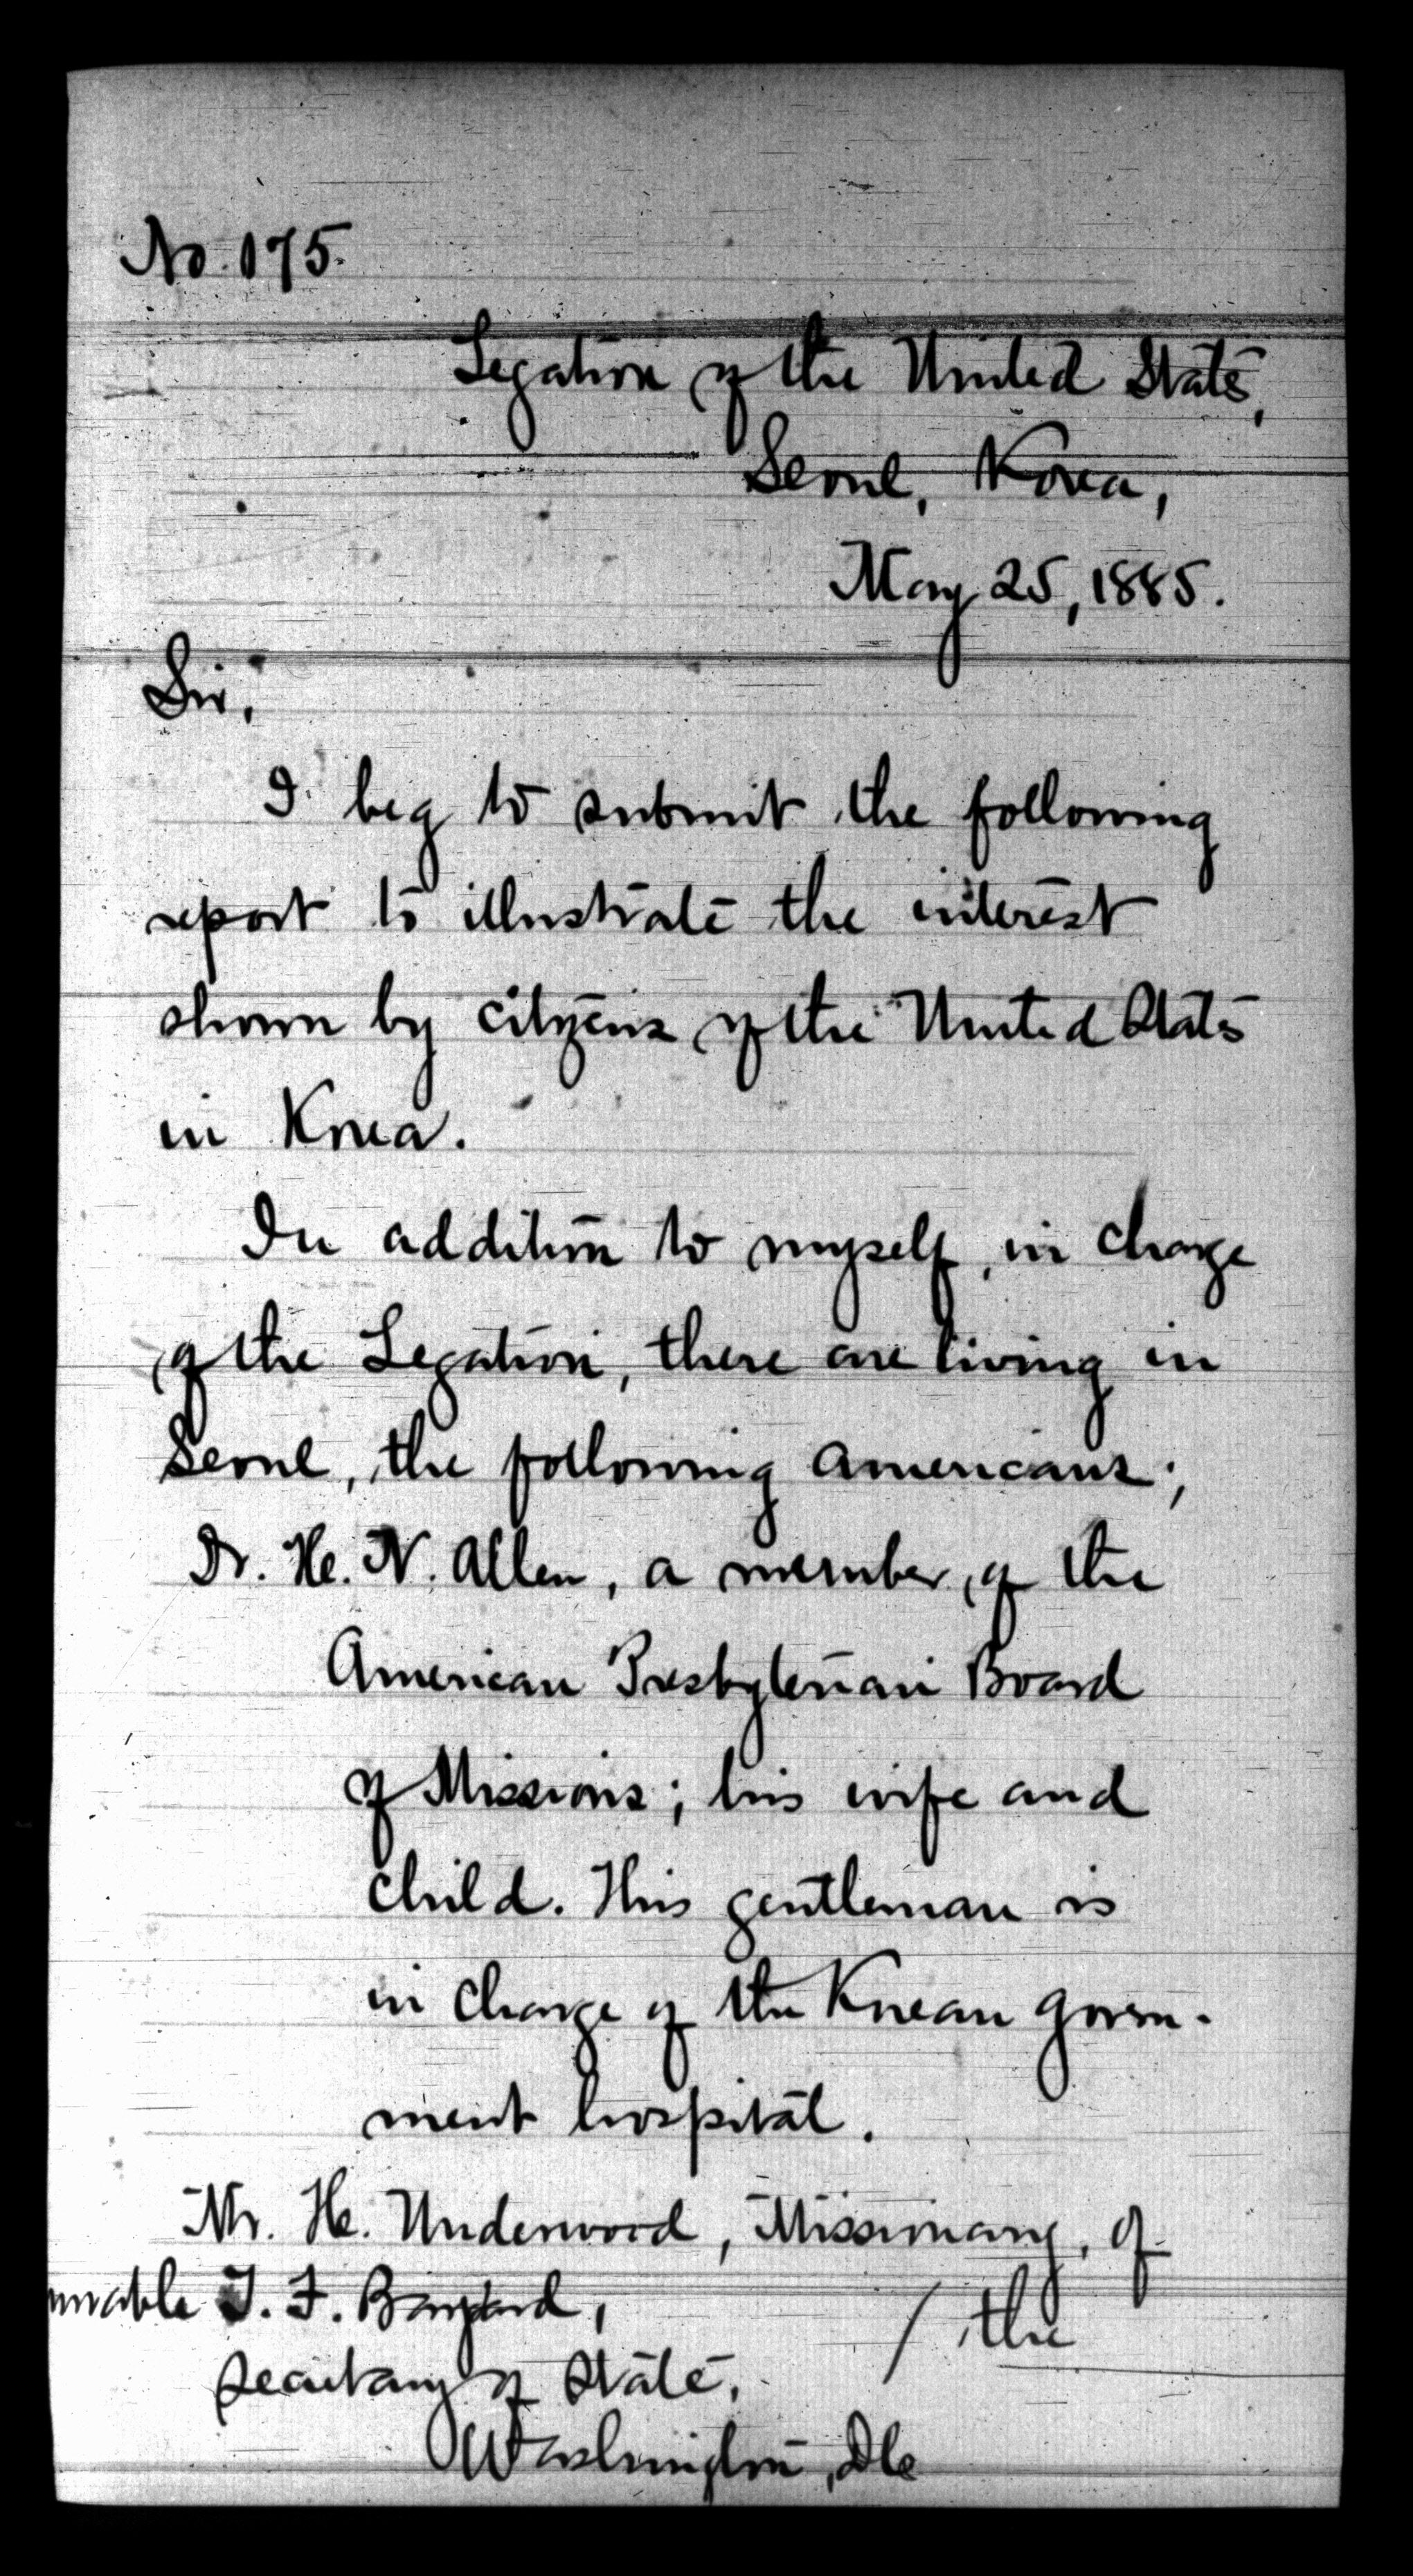 No. 175.
Legation of the United States,
Seoul, Korea,
May 25, 1885.
Sir,
I beg to submit the following
report to illustrate the interest
shown by citizens of the United States
in Korea.
In addition to myself, in charge
of the Legation, there are living in
Seoul, the following Americans;
Dr. H. N. Allen, a member, of the
American Presbyterian Board
of Missions; his wife and
child. This gentleman is
in charge of the Korean govern-
ment hospital.
Mr. H. Underwood, Missionary, of
/ the
norable T. F. Bayard,
Secretary of State,
Washington, D.C.